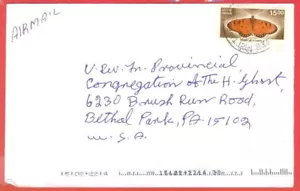 AIRMAIL
15.00
V. Rev. Fr. Provincial,
Congregation of The H. Ghost,
6230 Brush Run Road,
Bethal Park, PA 15102
U.S.A
15102+2214
15102+2214